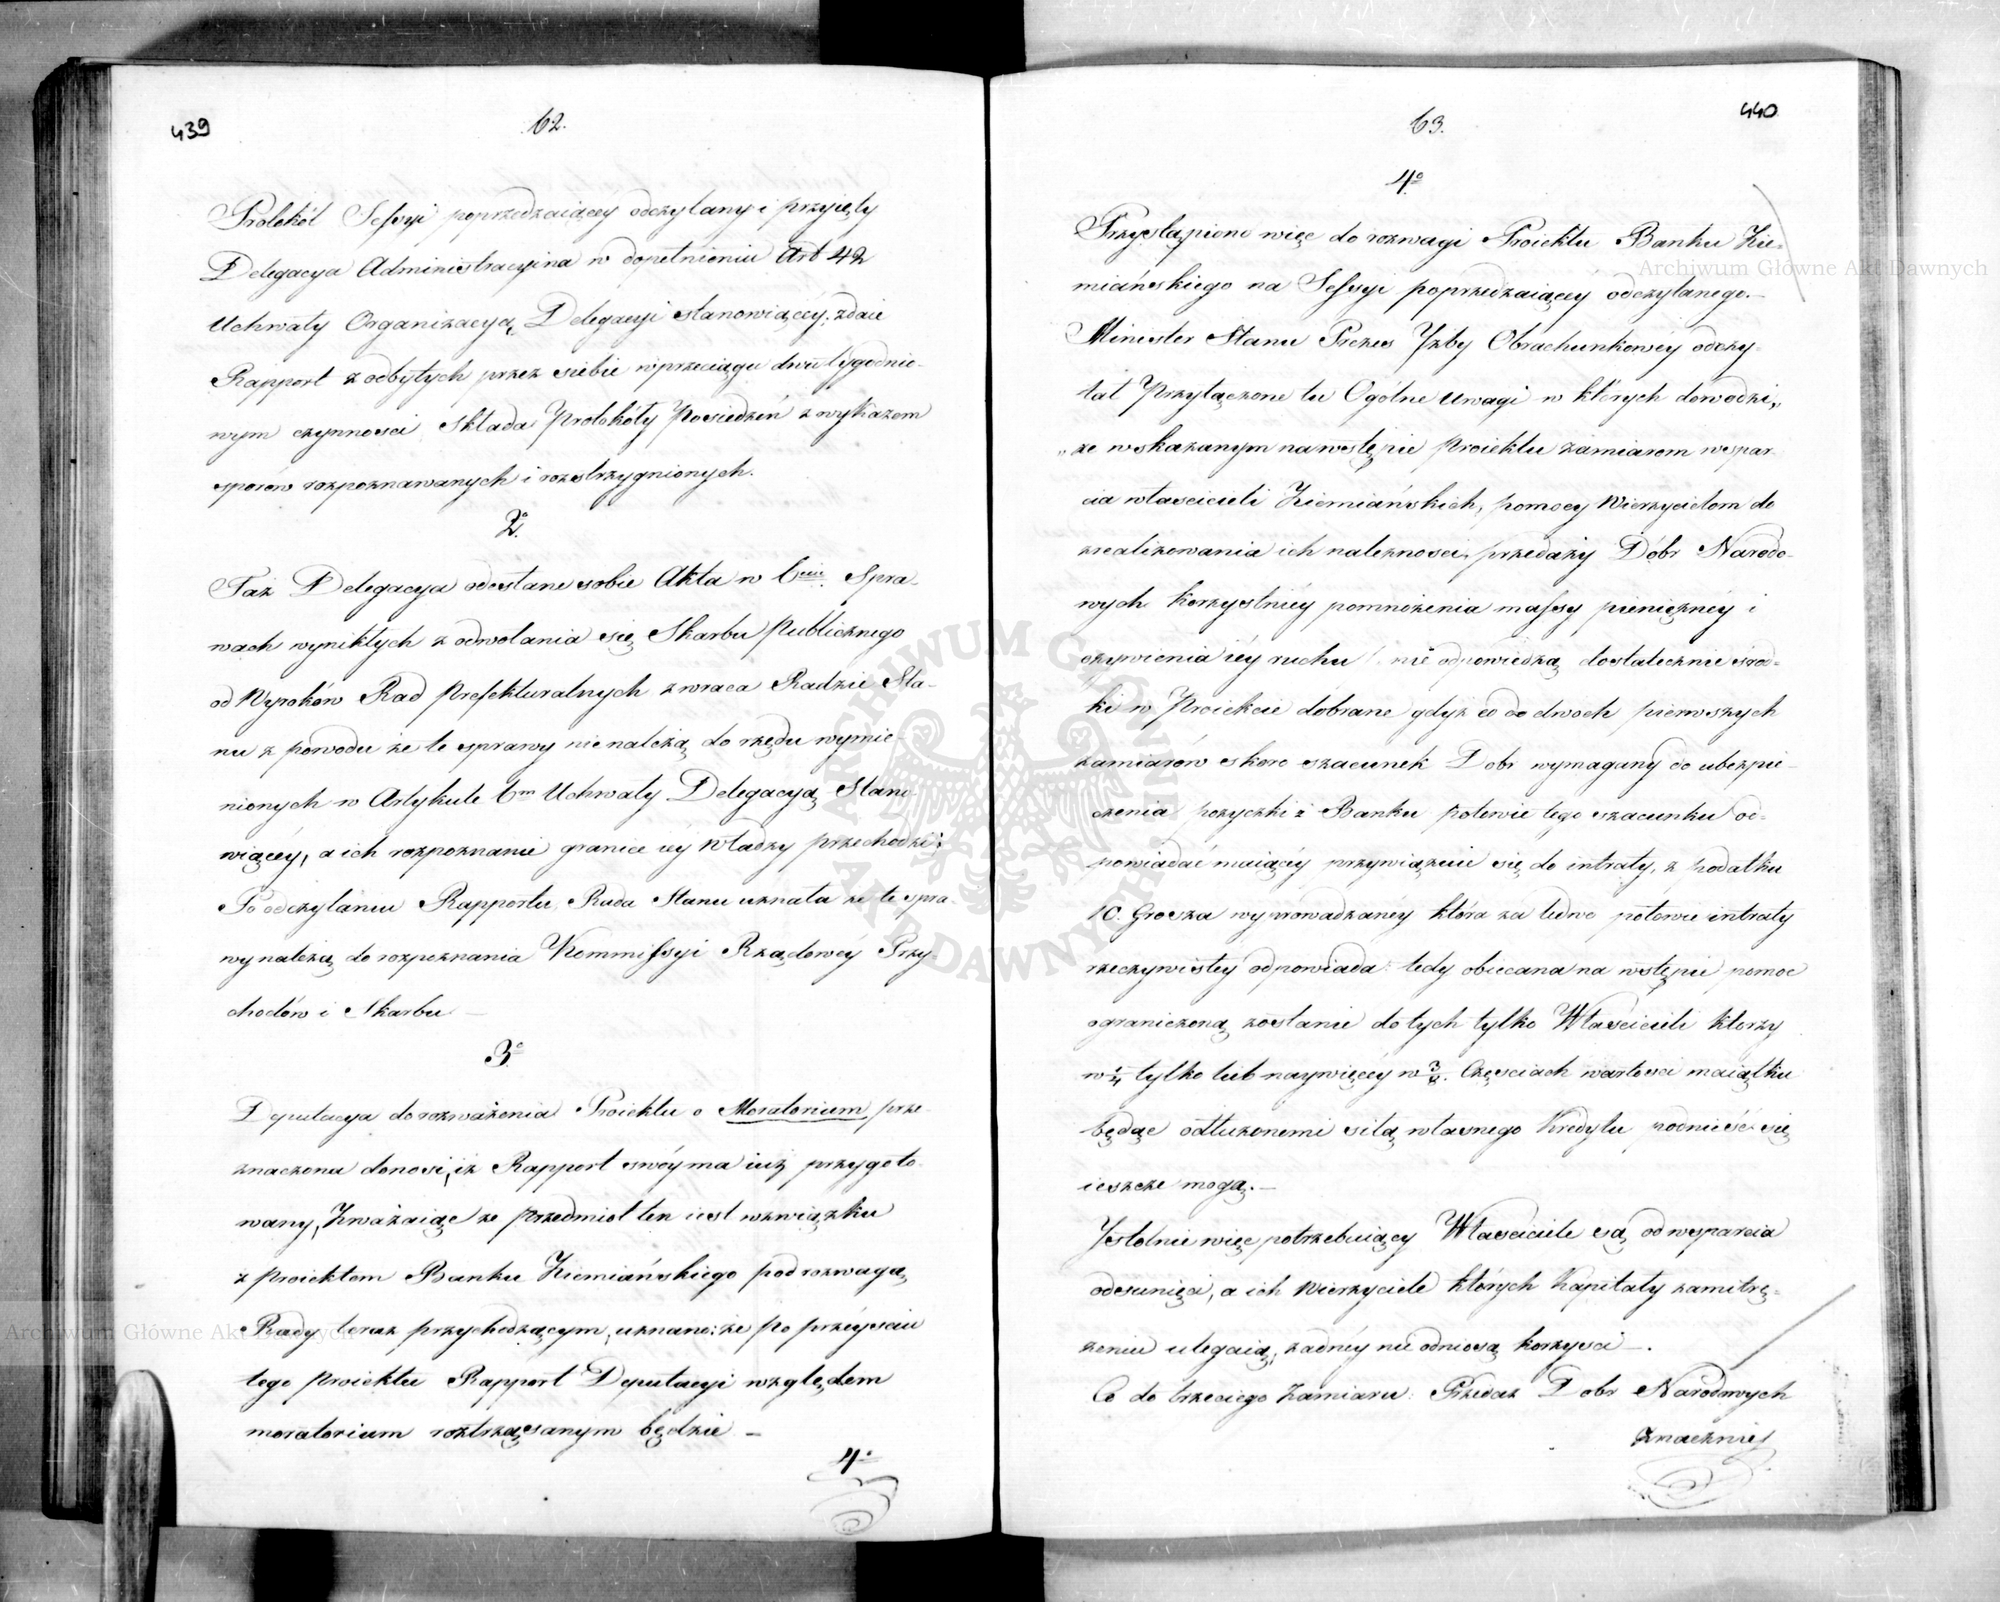 439
62.
Protokół Sessyi poprzedzaiącéy odczytany i przyięty
Delegacya Administracyina w dopełnieniu Art 42
Uchwały Organizacyą Delegacyi stanowiącéy, zdaie
Rapport z odbytych przez siebie w przeciągu dwu tygodnio-
wym czynności składa Protokóły Posiedzeń z wykazem
sporów rozpoznawanych i rozstrzygnionych.
2°.
Taż Delegacya odesłane sobie Akta w 6ciu Spra-
wach wynikłych z odwołania się Skarbu Publicznego
od Wyroków Rad Prefekturalnych zwraca Radzie Sta-
nu z powodu że te sprawy nie należą do rzędu wymie-
nionych w Artykule 6m Uchwały Delegacyą Stano-
wiącéy, a ich rozpoznanie granice iéy Władzy przechodzi;
Po odczytaniu Rapportu Rada Stanu uznała że te spra-
wy należą do rozpoznania Kommissyi Rządowéy Przy
chodów i Skarbu —
3°.
Deputacya do rozważenia Proiektu o Moratorium prze-
znaczona donosi, iż Rapport swóy ma iuż przygoto-
wany, Zważaiąc że przedmiot ten iest w związku
z proiektem Banku Ziemiańskiego pod rozwagą
Rady teraz przychodzącym, uznano: że po przéysciu
tego proiektu Rapport Deputacyi względem
moratorium roztrząsanym będzie —
4°
440
63.
4°.
Przystąpiono więc do rozwagi Proiektu Banku Zie-
miańskiego na Sessyi poprzedzaiącéy odczytanego.—
Minister Stanu Prezes Yzby Obrachunkowéy odczy-
tał Przyłączone tu Ogólne Uwagi w których dowodzi,,
,,że wskazanym na wstępie Proiektu zamiarom wspar-
cia właścicieli Ziemiańskich, pomocy Wierzycielom do
zrealizowania ich należności, przedaży Dóbr Narodo-
wych korzystniéy pomnożenia massy pieniężnéy i
ożywienia iéy ruchu nie odpowiedzą dostatecznie środ-
ki w Proiekcie dobrane gdyż co do dwoch pierwszych
zamiarów skoro szacunek Dobr wymagany do ubezpie-
czenia pożyczki z Banku połowie tego szacunku od-
powiadać maiącéy przywiązuie się do intraty, z podatku
10. Grosza wyprowadzanéy która za ledwo połowie intraty
rzeczywistéy odpowiada: tedy obiecana na wstępie pomoc
ograniczoną zostanie do tych tylko Właścicieli ktorzy
w 1/4 tylko lub naywięcéy w 3/8. Częściach wartosci maiątku
będąc odłużonemi siłą własnego Kredytu podnieść się
ieszcze mogą.—
Ystotnie więc potrzebuiący Właściciele są od wsparcia
odsunięci, a ich Wierzyciele których Kapitały zamitrę-
żeniu ulegaią, żadnéy nie odniosą korzysci —.
Co do trzeciego Zamiaru: Przedaż Dobr Narodowych
znacznie
ARCHIWUM GŁÓWNE AKT DAWNYCH
Archiwum Główne Akt Dawnych
Archiwum Główne Akt Dawnych